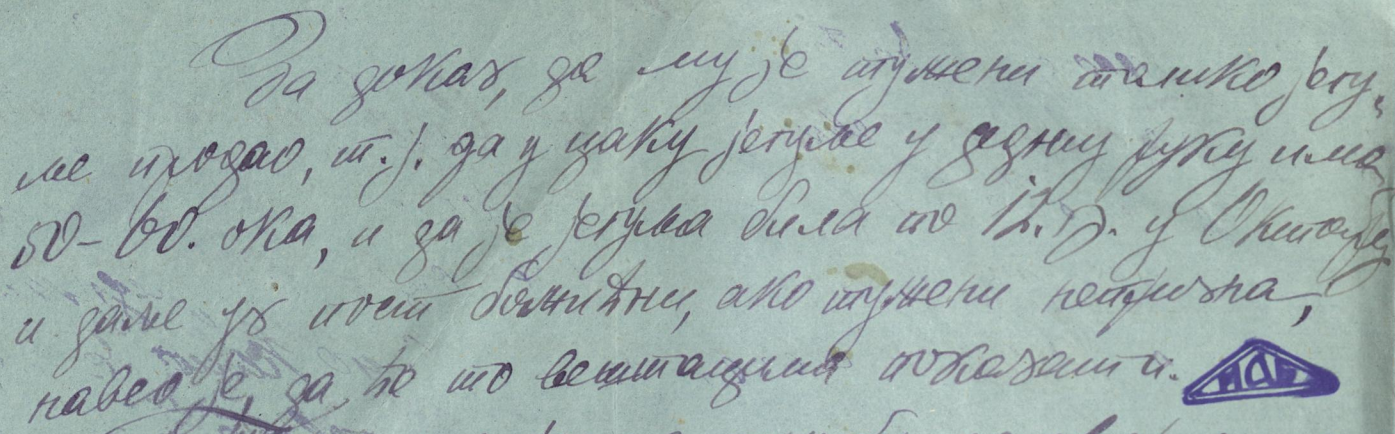 За доказ, да му је тужени толико јегу„
ље продао, т. ј. да у џаку јегуље у једну руку има
50–60. ока, и да је јегуља била по 12. гр. у Октобру
и даље уз пост божићни, ако тужени непризна,
навео је, да ће то вештацима показати.
НАБ